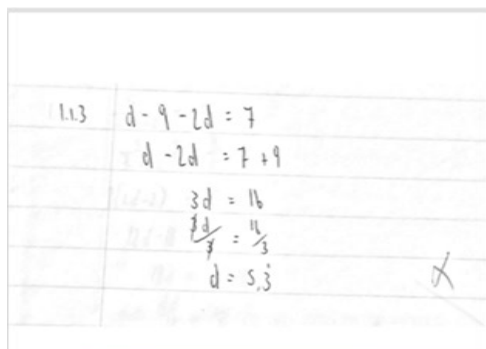 1.1.3 d - 9 - 2d = 7
d - 2d = 7 + 9
3d = 16
3d/3 = 16/3
d = 5,3̇